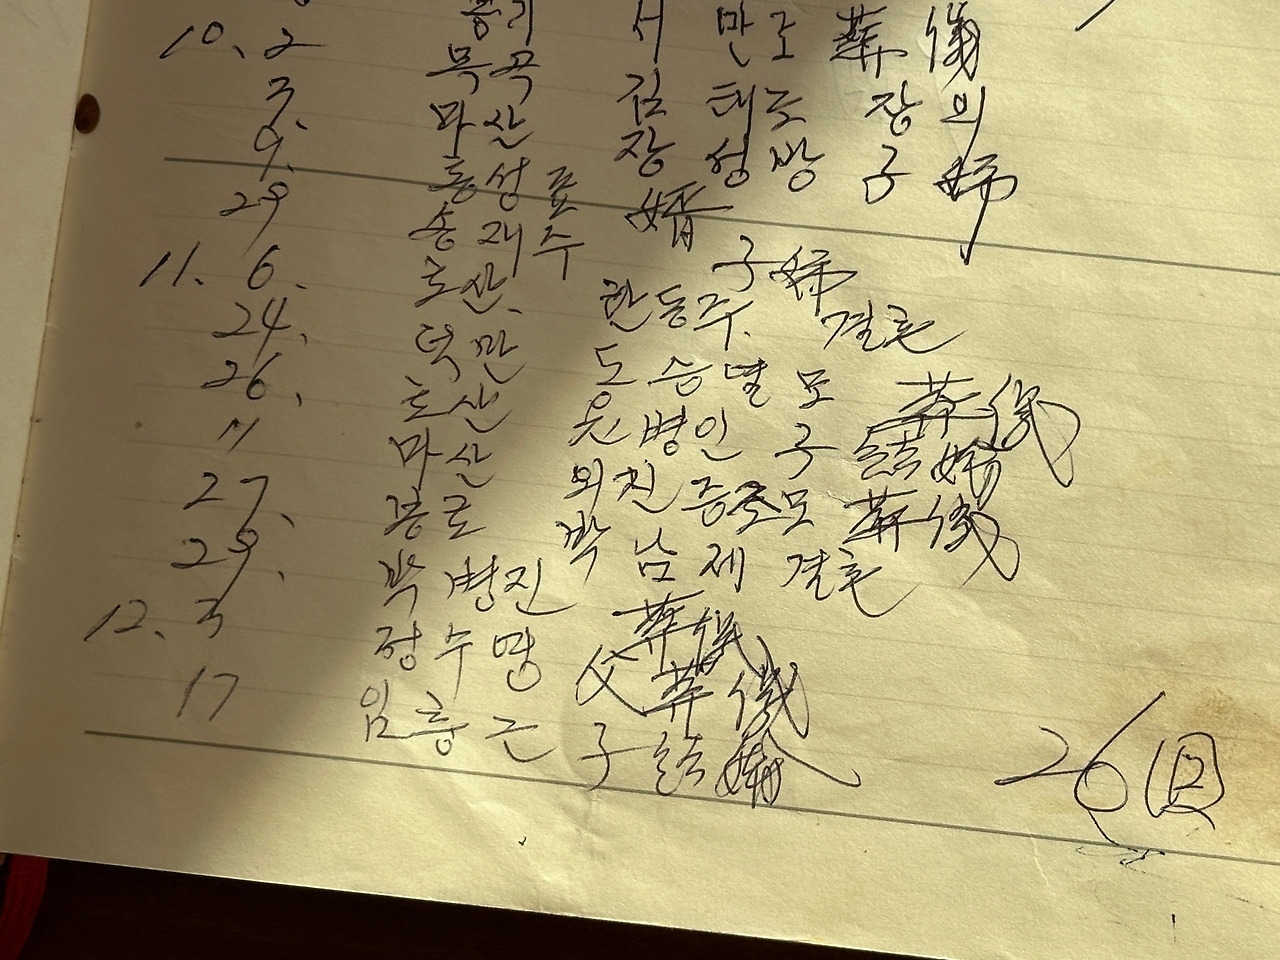 서 만조 葬儀
10. 2 목곡 김 태조 장의
3. 마산 장 성방 子 婚
9. 홍성표 婿
29 송재수 子 婚
11. 6. 호산. 한동주. 결혼
24. 덕만 도승열 모 葬儀
26. 호산 윤병인 子 結婚
〃 마산 외친 증조모 葬儀
27. 봉곡 박남제 결혼
29. 박병진 葬儀
12. 3 정수명 父 葬儀
17 임흥근 子 結婚
26 回